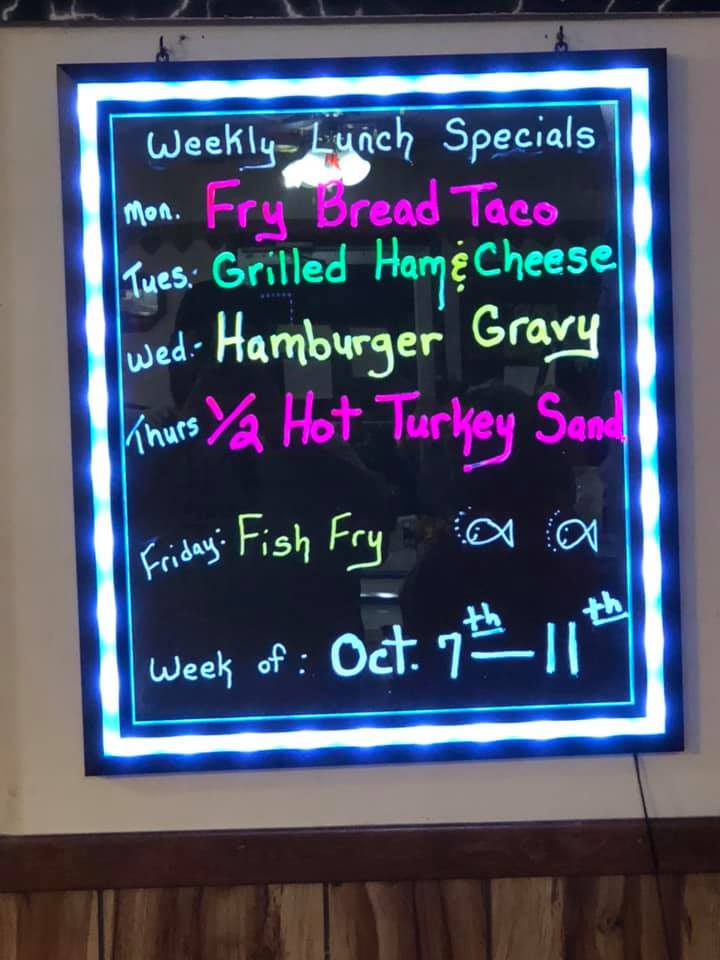 Weekly Lunch Specials
Mon. Fry Bread Taco
Tues: Grilled Ham & Cheese
Wed.- Hamburger Gravy
Thurs 1/2 Hot Turkey Sand.
Friday: Fish Fry
Week of: Oct. 7th - 11th